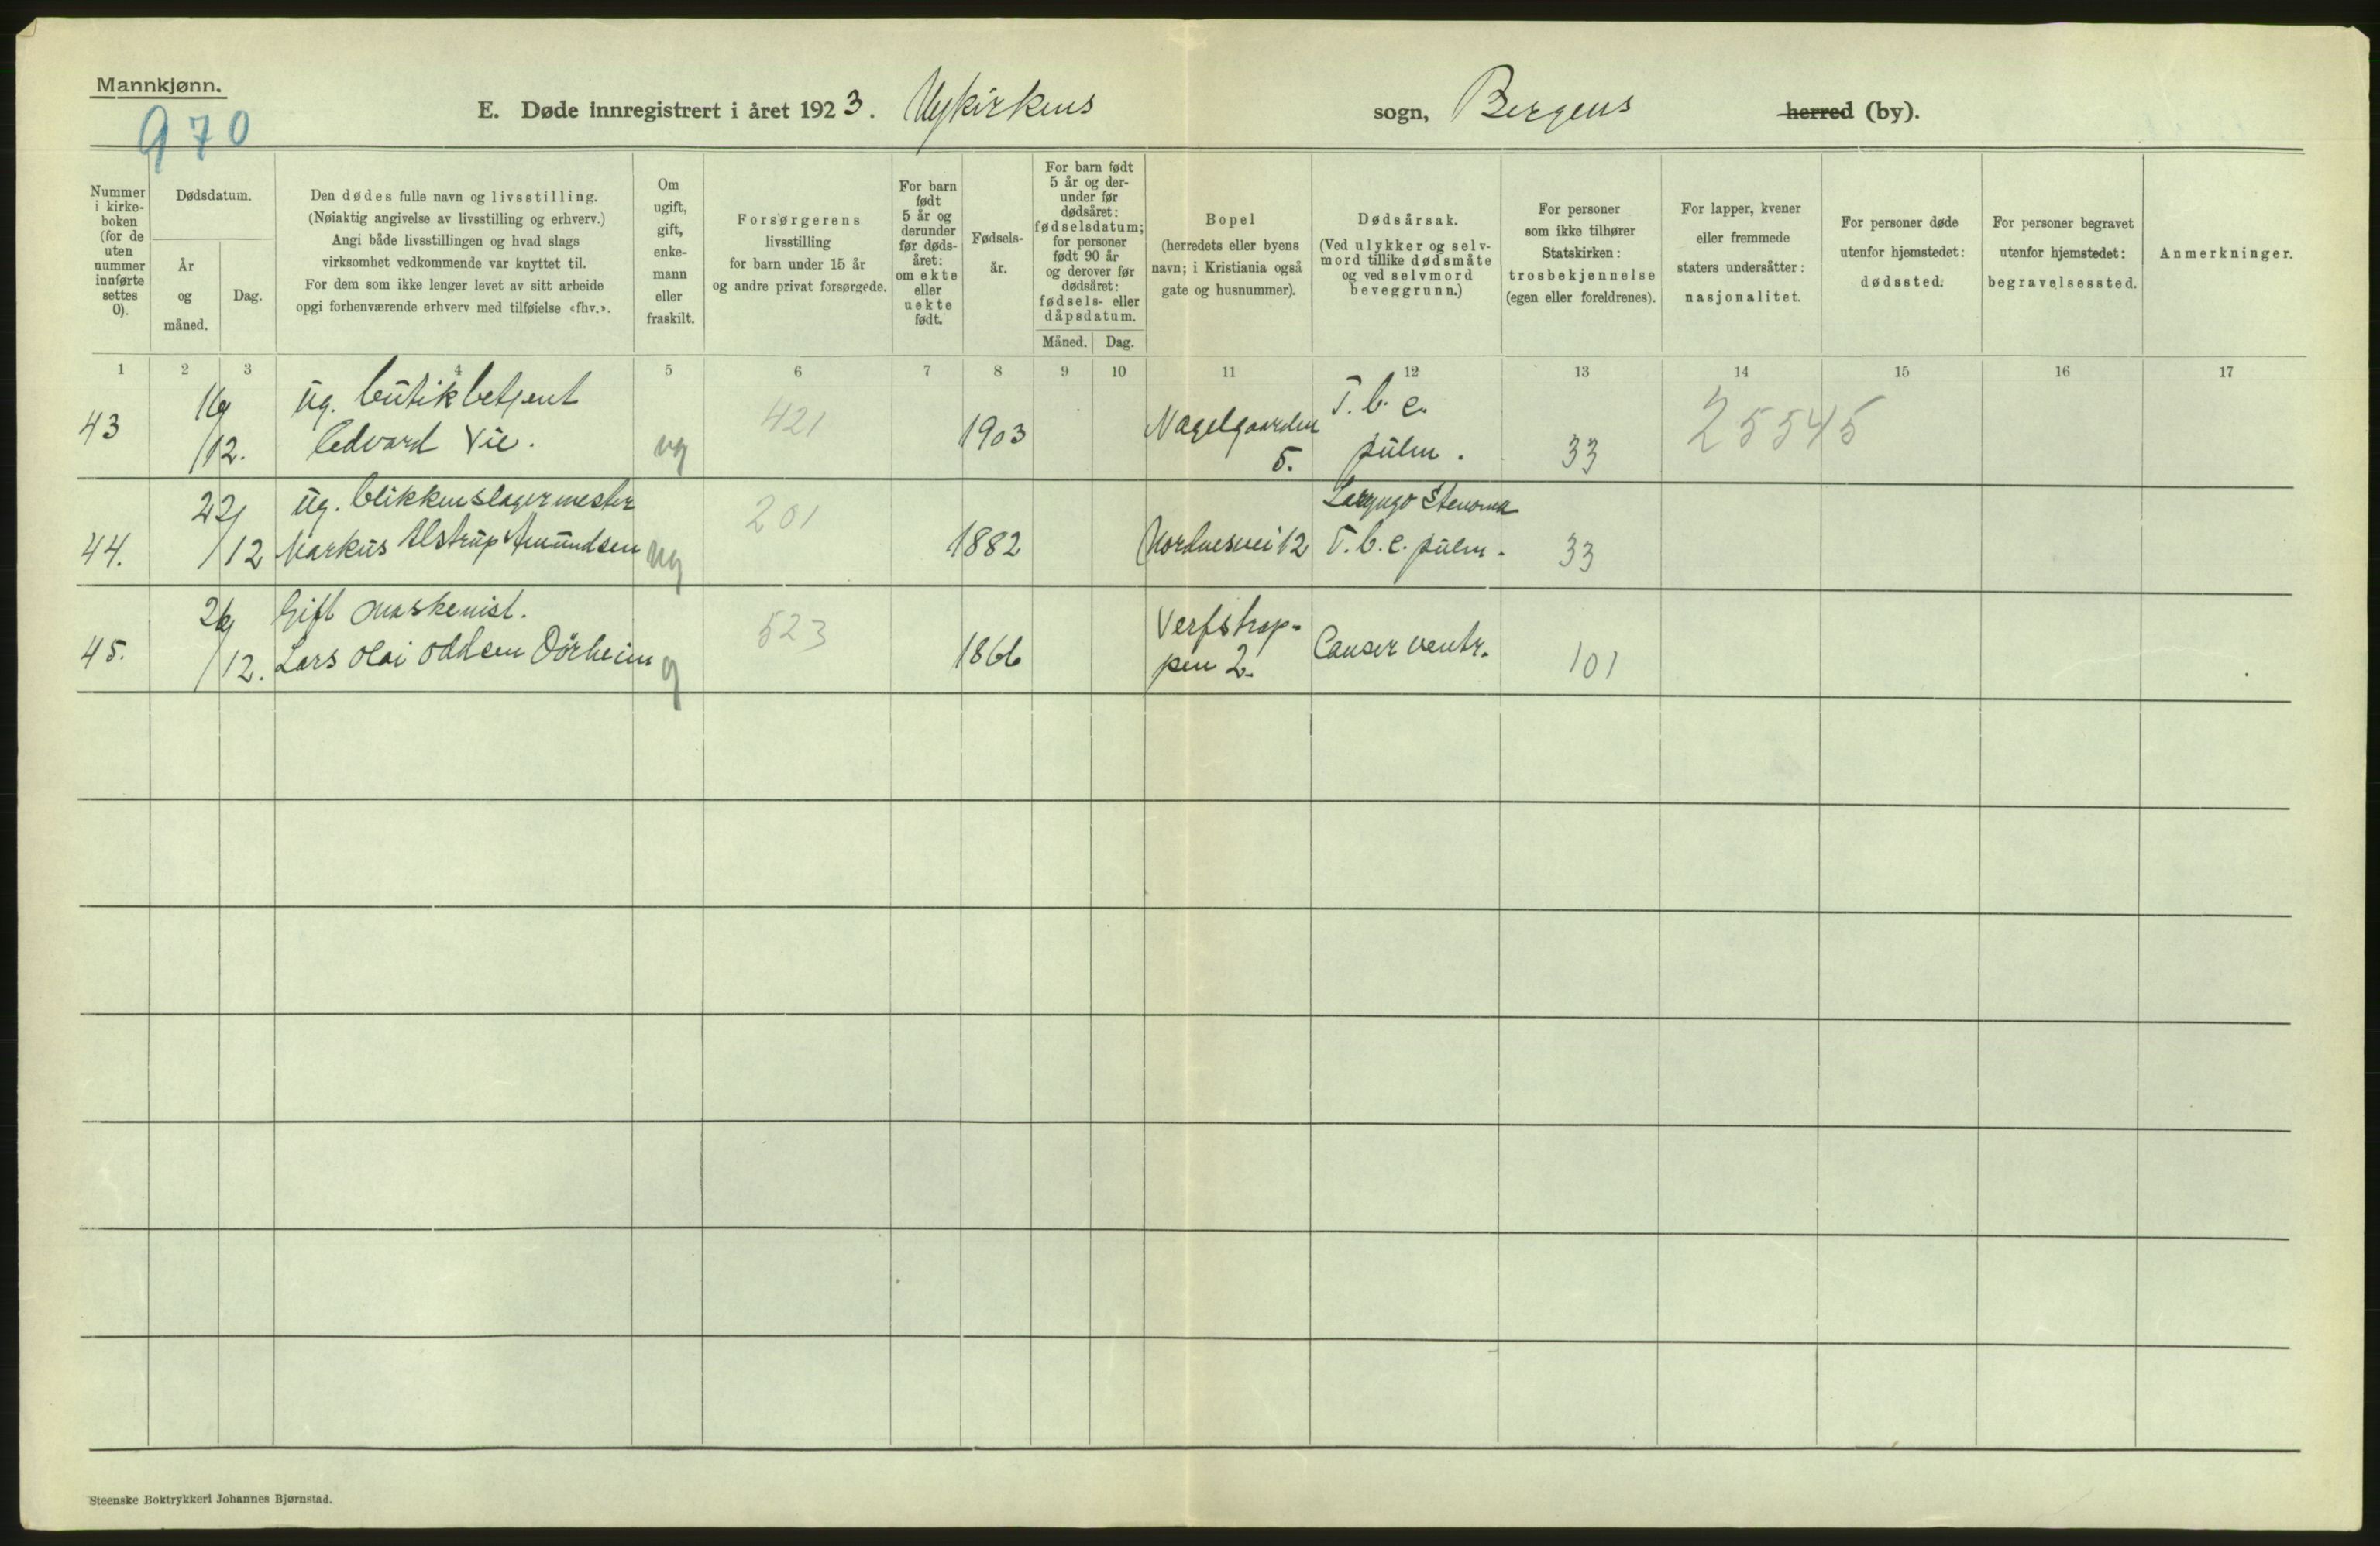 Mannkjønn.
970
E. Døde innregistrert i året 1923. Nykirkens sogn, Bergens herred (by).
Nummer i kirke-boken (for de uten nummer innførte settes 0).
Dødsdatum.
År og måned.
Dag.
Den dødes fulle navn og livsstilling.
(Nøiaktig angivelse av livsstilling og erhverv.)
Angi både livsstillingen og hvad slags
virksomhet vedkommende var knyttet til.
For dem som ikke lenger levet av sitt arbeide
opgi forhenværende erhverv med tilføielse «fhv.».
Om ugift, gift, enke-mann eller fraskilt.
Forsørgerens
livsstilling
for barn under 15 år
og andre privat forsørgede.
For barn født 5 år og derunder før døds-året: om ekte eller uekte født.
Fødsels-år.
For barn født 5 år og der-under før dødsåret: fødselsdatum; for personer født 90 år og derover før dødsåret: fødsels- eller dåpsdatum.
Måned. Dag.
Bopel
(herredets eller byens
navn; i Kristiania også
gate og husnummer).
Dødsårsak.
(Ved ulykker og selv-
mord tillike dødsmåte
og ved selvmord
beveggrunn.)
For personer
som ikke tilhører
Statskirken:
trosbekjennelse
(egen eller foreldrenes).
For lapper, kvener
eller fremmede
staters undersåtter:
nasjonalitet.
For personer døde
utenfor hjemstedet:
dødssted.
For personer begravet
utenfor hjemstedet:
begravelsessted.
Anmerkninger.
1 2 3 4 5 6 7 8 9 10 11 12 13 14 15 16 17
43 16/12. ug. butikbetjent
Edvard Vie. ug 421 1903 Nagelgaarden
5. T.b.c.
pulm. 33 25545
44. 22/12 ug. blikkenslagermester
Markus Alstrup Amundsen ug 201 1882 Nordnesvei 12 Laryngo Stenoma
T.b.c. pulm. 33
45. 26/12. Gift maskenist.
Lars Olai Oddsen Dörheim g 523 1866 Verfstrap-
pen 2. Canser ventr. 101
Steenske Boktrykkeri Johannes Bjørnstad.